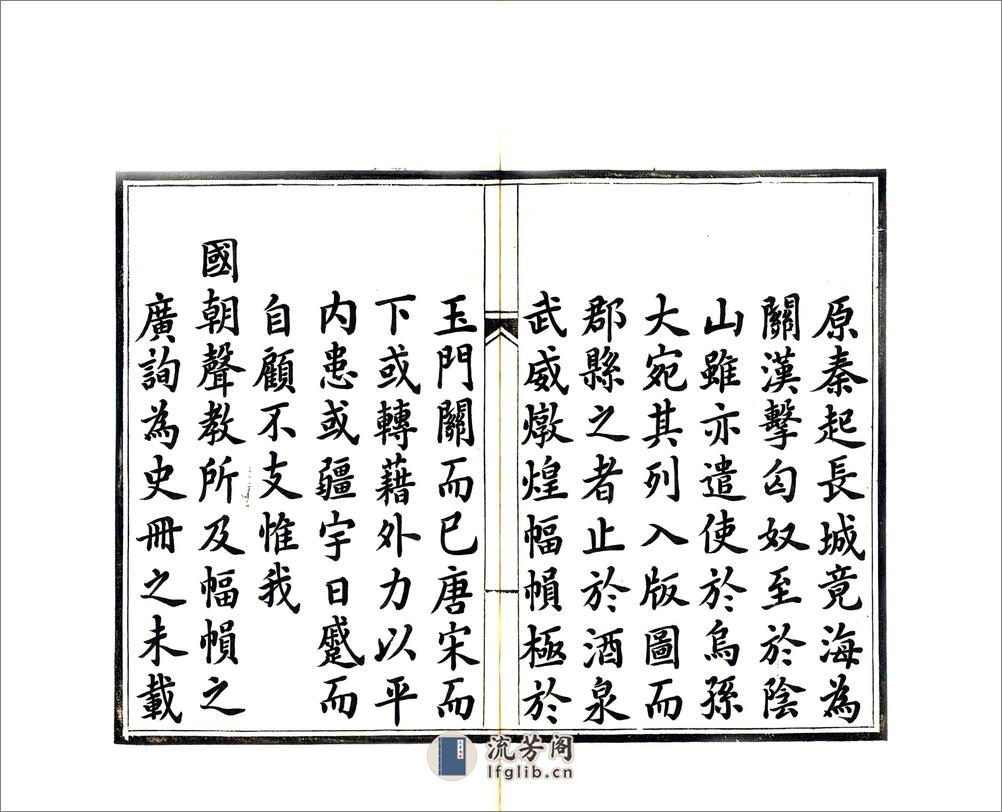 原秦起長城竟海為
關漢擊匈奴至於陰
山雖亦遣使於烏孫
大宛其列入版圖而
郡縣之者止於酒泉
武威燉煌幅幀極於
玉門關而已唐宋而
下或轉藉外力以平
内患或疆宇日蹙而
自顧不支惟我
國朝聲教所及幅幀之
廣詢為史冊之未載
流芳阁
lfglib.cn